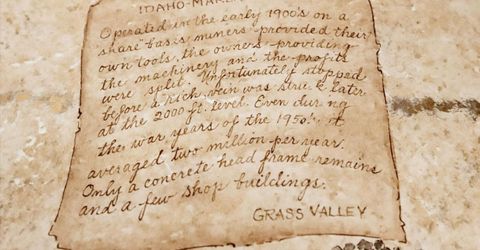 IDAHO-MARY
Operated in the early 1900's on a
"share" basis miners provided their
own tools, the owners providing
the machinery and the profits
were split. Unfortunately stopped
before a rich vein was struck later
at the 2000 ft. level. Even during
the war years of the 1950's it
averaged two million per year.
Only a concrete head frame remains
and a few shop buildings.
GRASS VALLEY